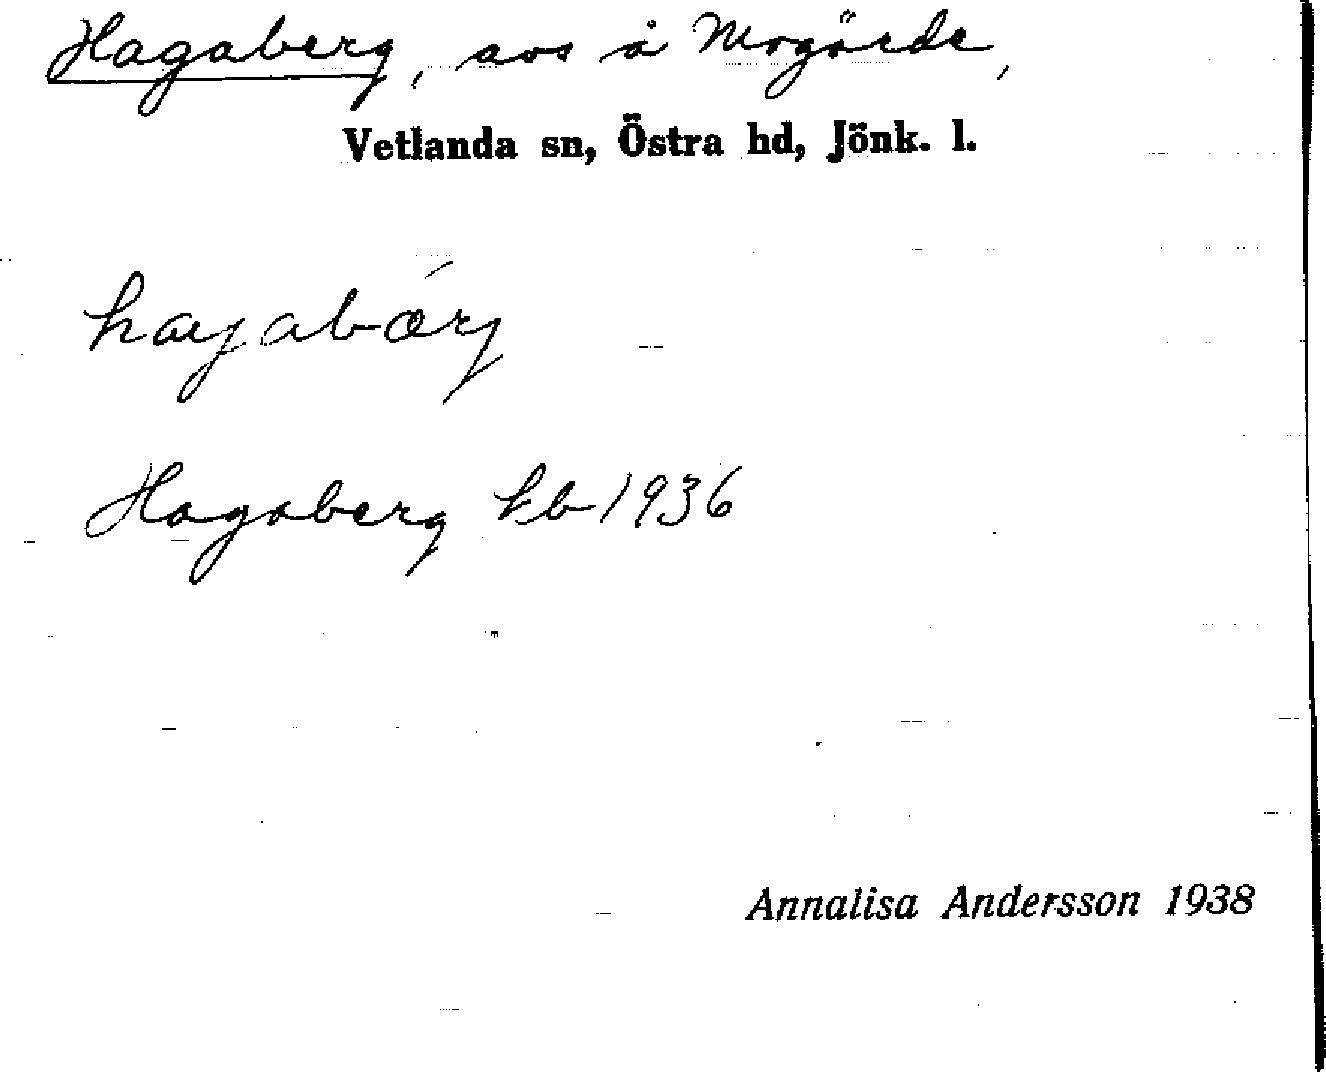 Hagaberg, avs å Mogärde,
Vetlanda sn, Östra hd, Jönk. l.
Hagaberg kb 1936
Annalisa Andersson 1938